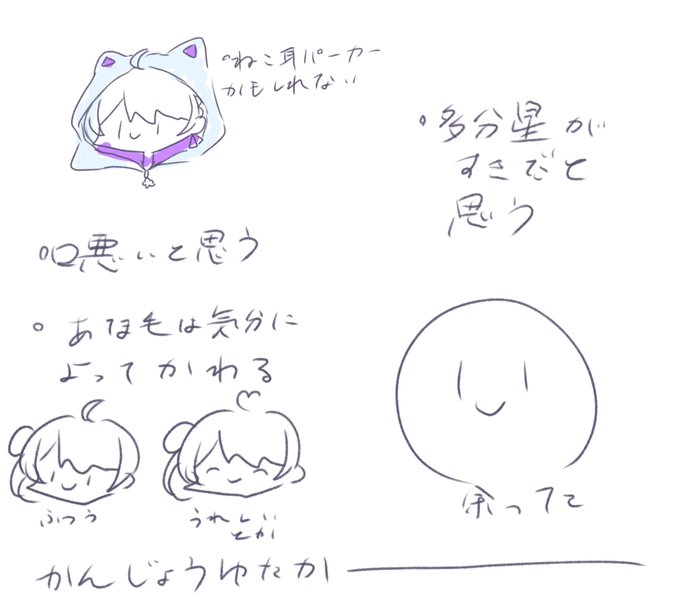 ねこ耳パーカー
かもしれない
多分星が
すきだと
思う
口悪いと思う
あほ毛は気分に
よってかわる
ふつう
うれしい
とか
余ってた
かんじょうゆたか